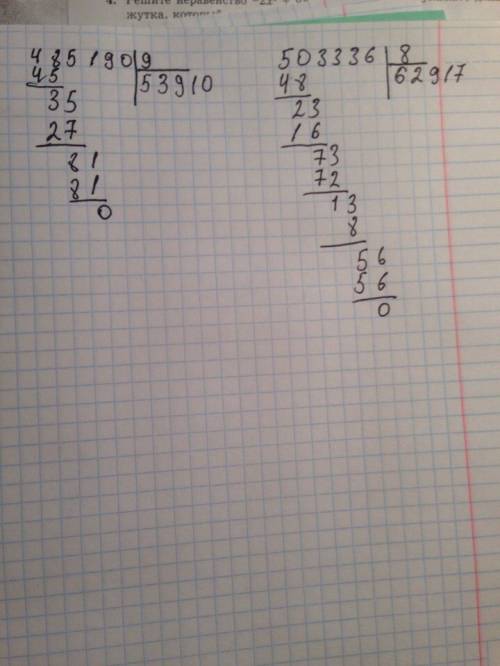 4. Решите неравенство
жутка, который
485190 9
45 53910
35
27
81
81
0
503336 8
48 62917
23
16
73
72
13
8
56
56
0